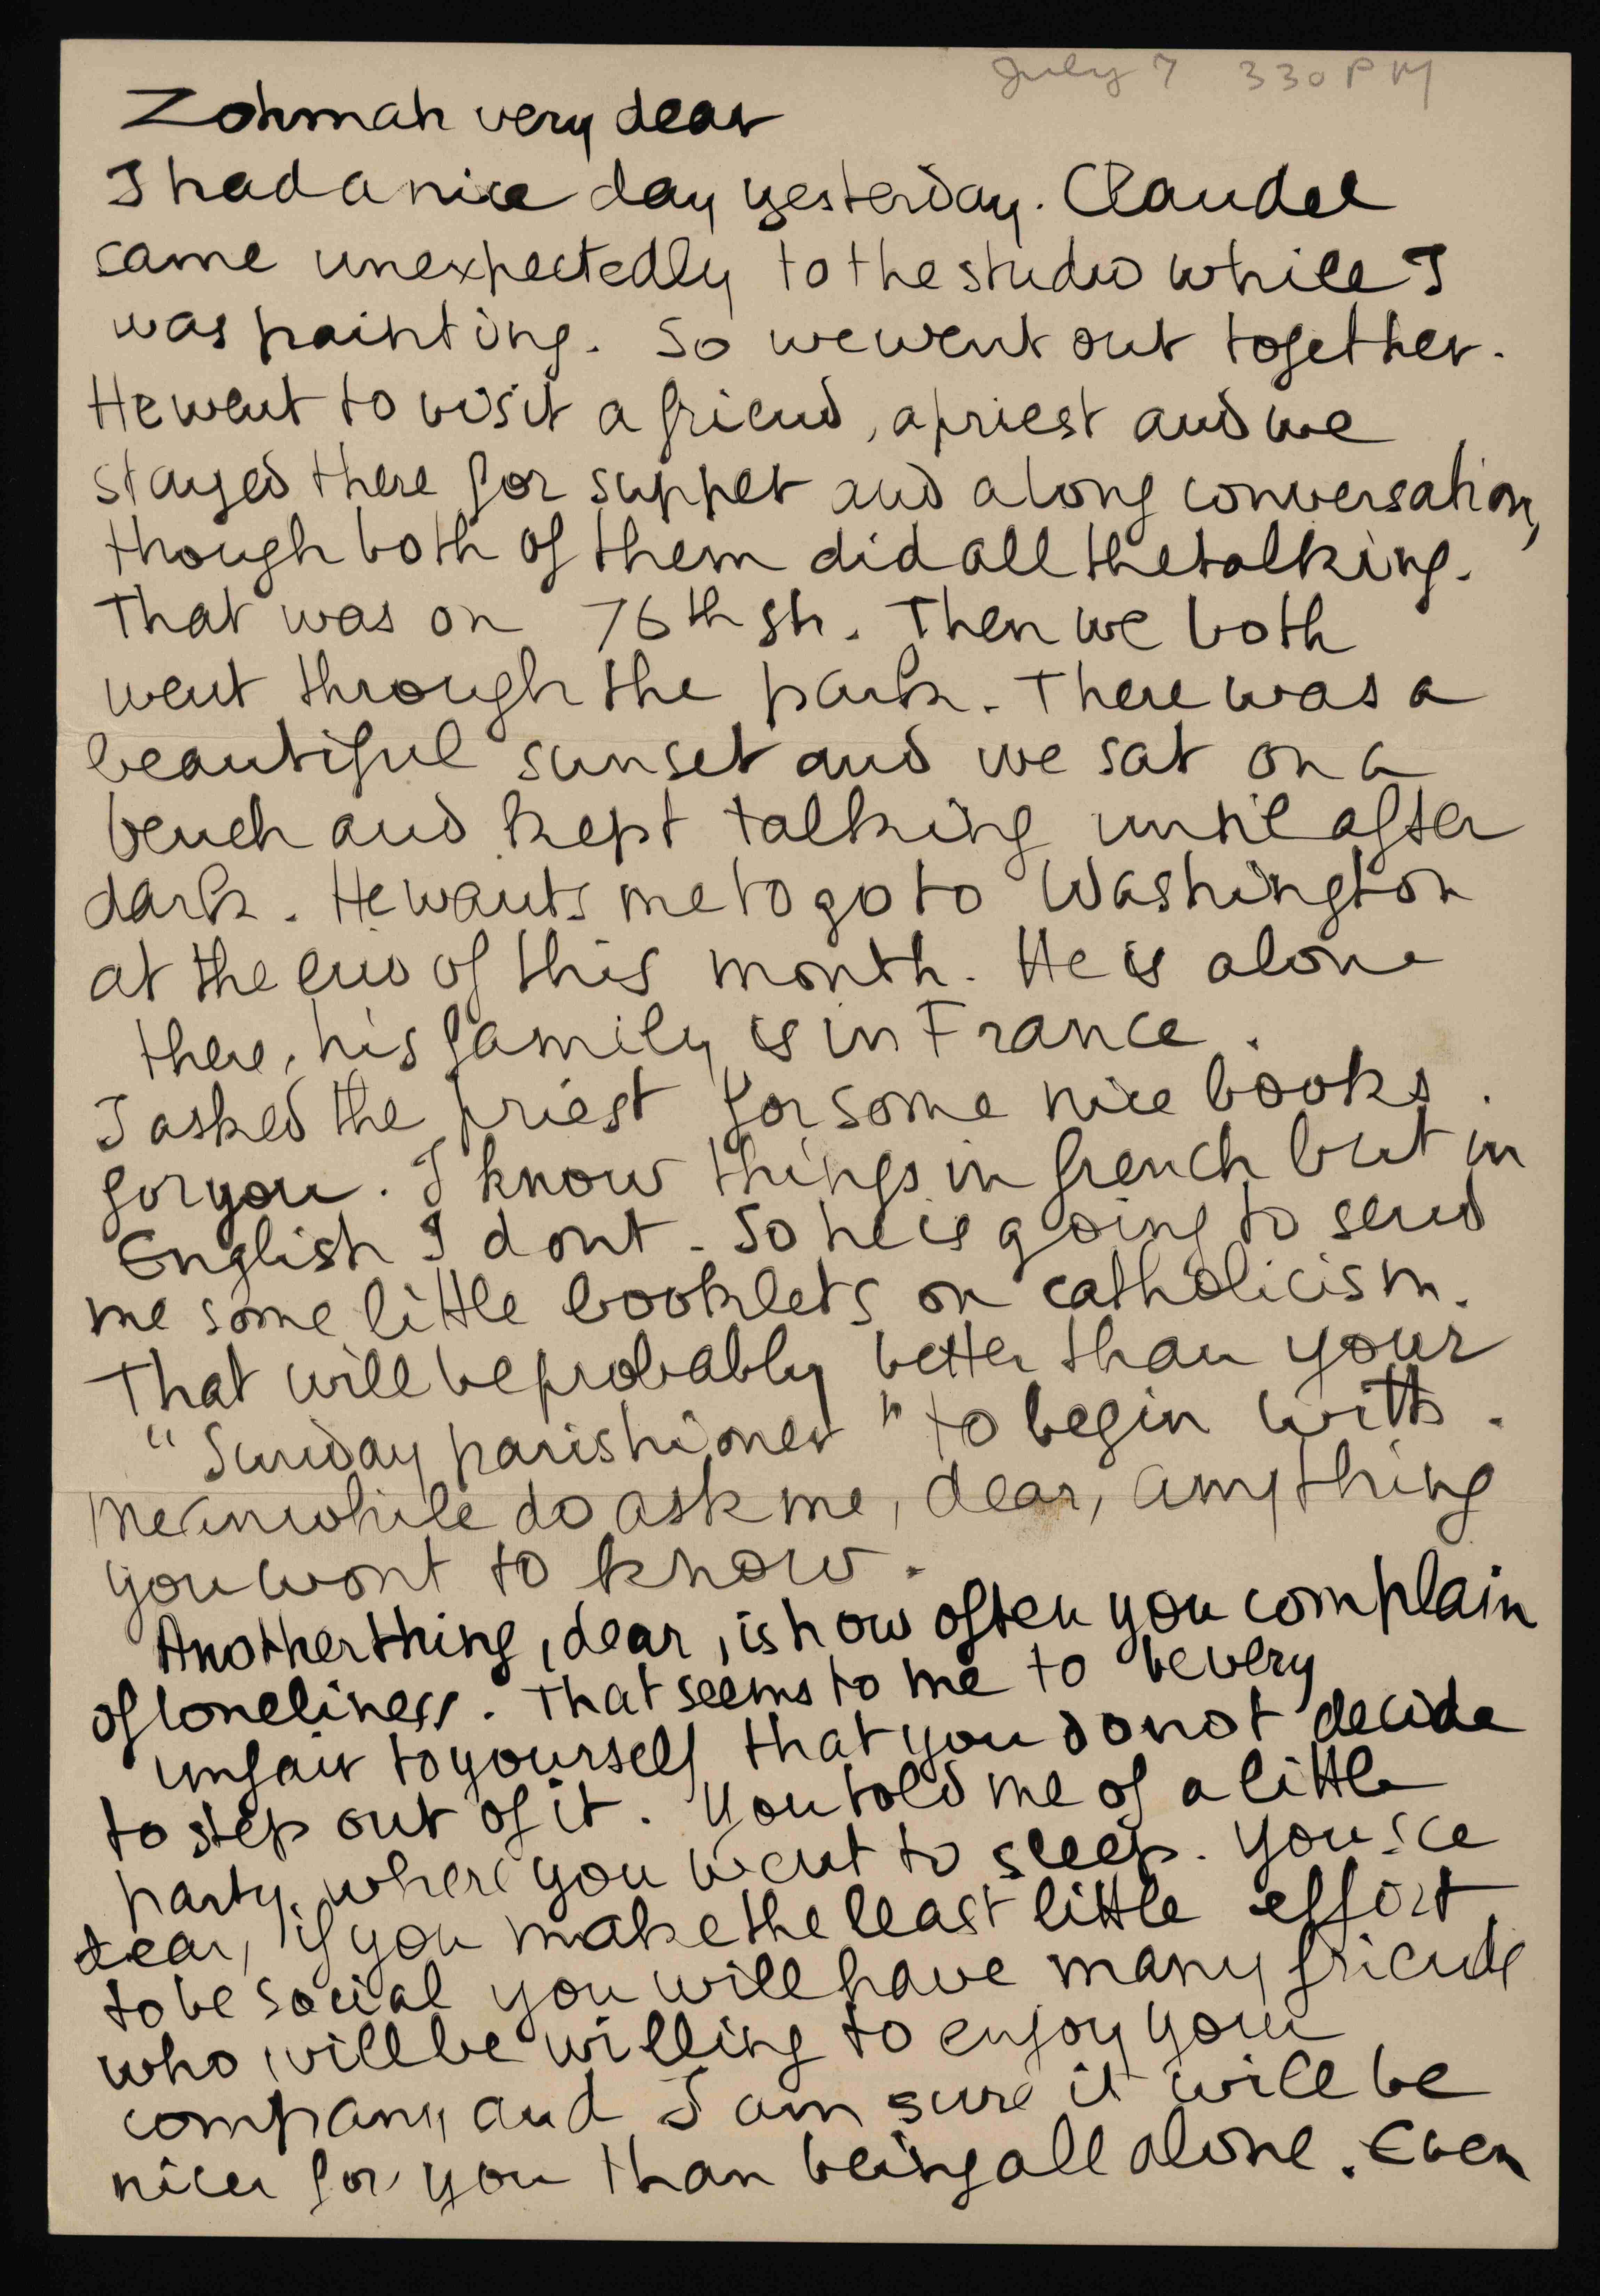 July 7 330 PM
Zohmah very dear
I had a nice day yesterday. Claudel
came unexpectedly to the studio while I
was painting. So we went out together.
He went to visit a friend, a priest and we
stayed there for supper and a long conversation,
though both of them did all the talking.
That was on 76th str. Then we both
went through the park. There was a
beautiful sunset and we sat on a
bench and kept talking until after
dark. He wants me to go to Washington
at the end of this month. He is alone
there, his family is in France.
I asked the priest for some nice books.
for you. I know things in french but in
English I dont. So he is going to send
me some little booklets on catholicism.
That will be probably better than your
"Sunday parishioner" to begin with.
Meanwhile do ask me, dear, anything
you wont to know.
Another thing, dear, is how often you complain
of loneliness. That seems to me to be very
unfair to yourself that you do not decide
to step out of it. You told me of a little
party where you went to sleep. You see
dear, if you make the least little effort
to be social you will have many friends
who will be willing to enjoy your
company and I am sure it will be
nicer for you than being all alone. Even